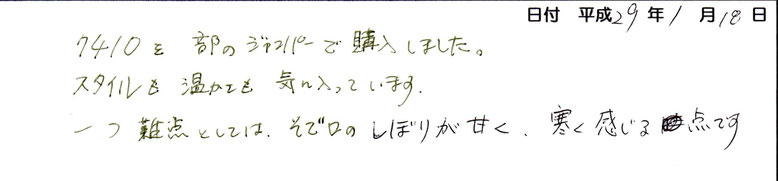 日付 平成29年1月18日
7410を 部のジャンパーで購入しました。
スタイルも 温かさも 気に入っています.
一つ 難点としては、そで口の しぼりが甘く、寒く感じる 点です